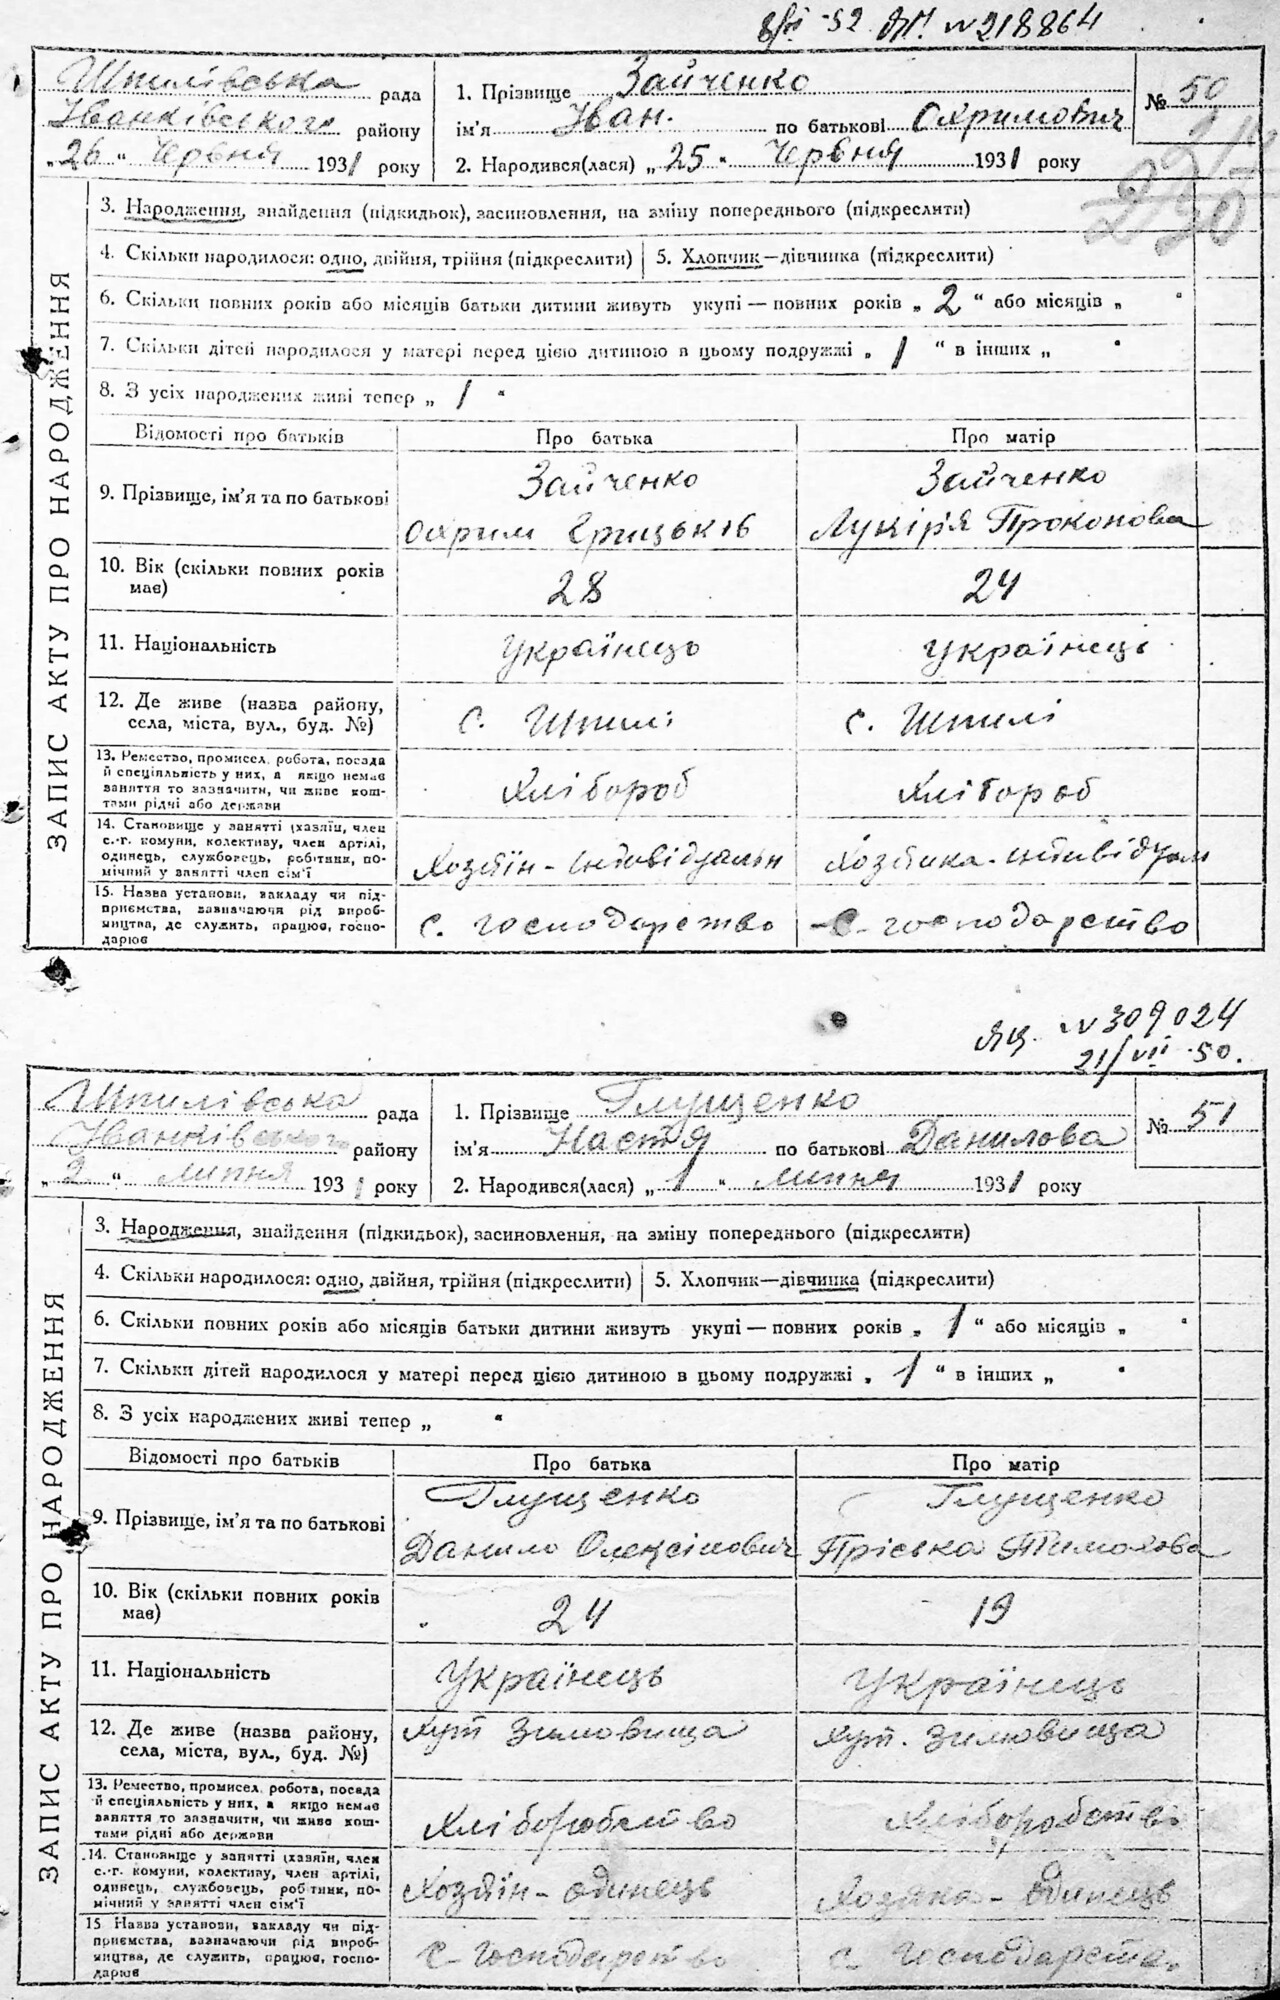 8/VI -52. ЯП № 218864
Шпилівська рада
Іванківського району
„26" Червня 1931 року
1. Прізвище Зайченко
ім'я Іван. по батькові Охримович
2. Народився(лася) „25" Червня 1931 року
№ 50
230
ЗАПИС АКТУ ПРО НАРОДЖЕННЯ
3. Народження, знайдення (підкидьок), засиновлення, на зміну попереднього (підкреслити)
4. Скільки народилося: одно, двійня, трійня (підкреслити) 5. Хлопчик—дівчинка (підкреслити)
6. Скільки повних років або місяців батьки дитини живуть укупі — повних років „2" або місяців „ "
7. Скільки дітей народилося у матері перед цією дитиною в цьому подружжі „1" в інших „ "
8. З усіх народжених живі тепер „1"
Відомості про батьків Про батька Про матір
9. Прізвище, ім'я та по батькові
Зайченко
Охрим Грицьків
Зайченко
Лукір'я Проконова
10. Вік (скільки повних років
має)
28 24
11. Національність Українець Українець
12. Де живе (назва району,
села, міста, вул., буд. №)
с. Шпилі с. Шпилі
13. Ремество, промисел, робота, посада
й спеціяльність у них, а якщо немає
заняття то зазначити, чи живе кош-
тами рідні або держави
Хлібороб Хлібороб
14. Становище у занятті (хазяїн, член
с.-г. комуни, колективу, член артілі,
одинець, службовець, робітник, по-
мічний у занятті член сім'ї
Хозяїн - індовідуальн Хозяика - індивідуал
15. Назва установи, закладу чи під-
приємства, зазначаючи рід вироб-
ництва, де служить, працює, госпо-
дарює
с. господарство с. господарство
ЯЦ. № 309024
21/VII -50.
Шпилівська рада
Іванківського району
„2" липня 1931 року
1. Прізвище Глущенко
ім'я Настя по батькові Данилова
2. Народився(лася) „1" липня 1931 року
№ 51
ЗАПИС АКТУ ПРО НАРОДЖЕННЯ
3. Народження, знайдення (підкидьок), засиновлення, на зміну попереднього (підкреслити)
4. Скільки народилося: одно, двійня, трійня (підкреслити) 5. Хлопчик—дівчинка (підкреслити)
6. Скільки повних років або місяців батьки дитини живуть укупі — повних років „1" або місяців „ "
7. Скільки дітей народилося у матері перед цією дитиною в цьому подружжі „1" в інших „ "
8. З усіх народжених живі тепер „ "
Відомості про батьків Про батька Про матір
9. Прізвище, ім'я та по батькові
Глущенко
Данило Олексійович
Глущенко
Пріська Тимохова
10. Вік (скільки повних років
має)
24 19
11. Національність Українець Українець
12. Де живе (назва району,
села, міста, вул., буд. №)
Хут Зимовища Хут. Зимовища
13. Ремество, промисел, робота, посада
й спеціяльність у них, а якщо немає
заняття то зазначити, чи живе кош-
тами рідні або держави
Хліборобство Хліборобство
14. Становище у занятті (хазяїн, член
с.-г. комуни, колективу, член артілі,
одинець, службовець, робітник, по-
мічний у занятті член сім'ї
Хозяїн - одинець Хозяка - одинець
15 Назва установи, закладу чи під-
приємства, зазначаючи рід вироб-
ництва, де служить, працює, госпо-
дарює
с-господарство с. господарств.